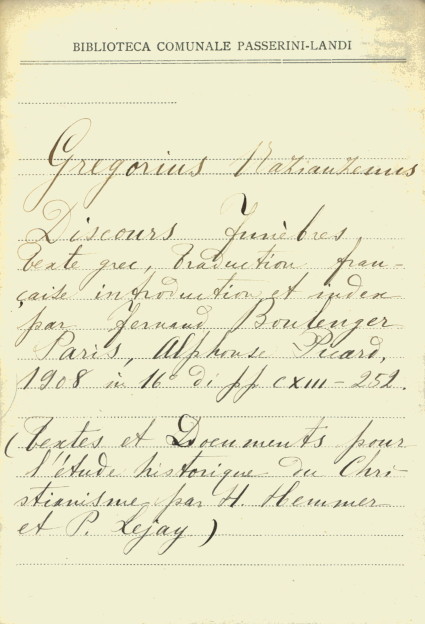 BIBLIOTECA COMUNALE PASSERINI-LANDI
Gregorius Nazianzenus
Discours funèbres,
texte grec, traduction fran-
çaise introduction et index
par Fernand Boulenger
Paris, Alphonse Picard,
1908 in 16º di pp CXIII-252.
(Textes et Documents pour
l'étude historique du Chri-
stianisme par H. Hemmer
et P. Lejay)